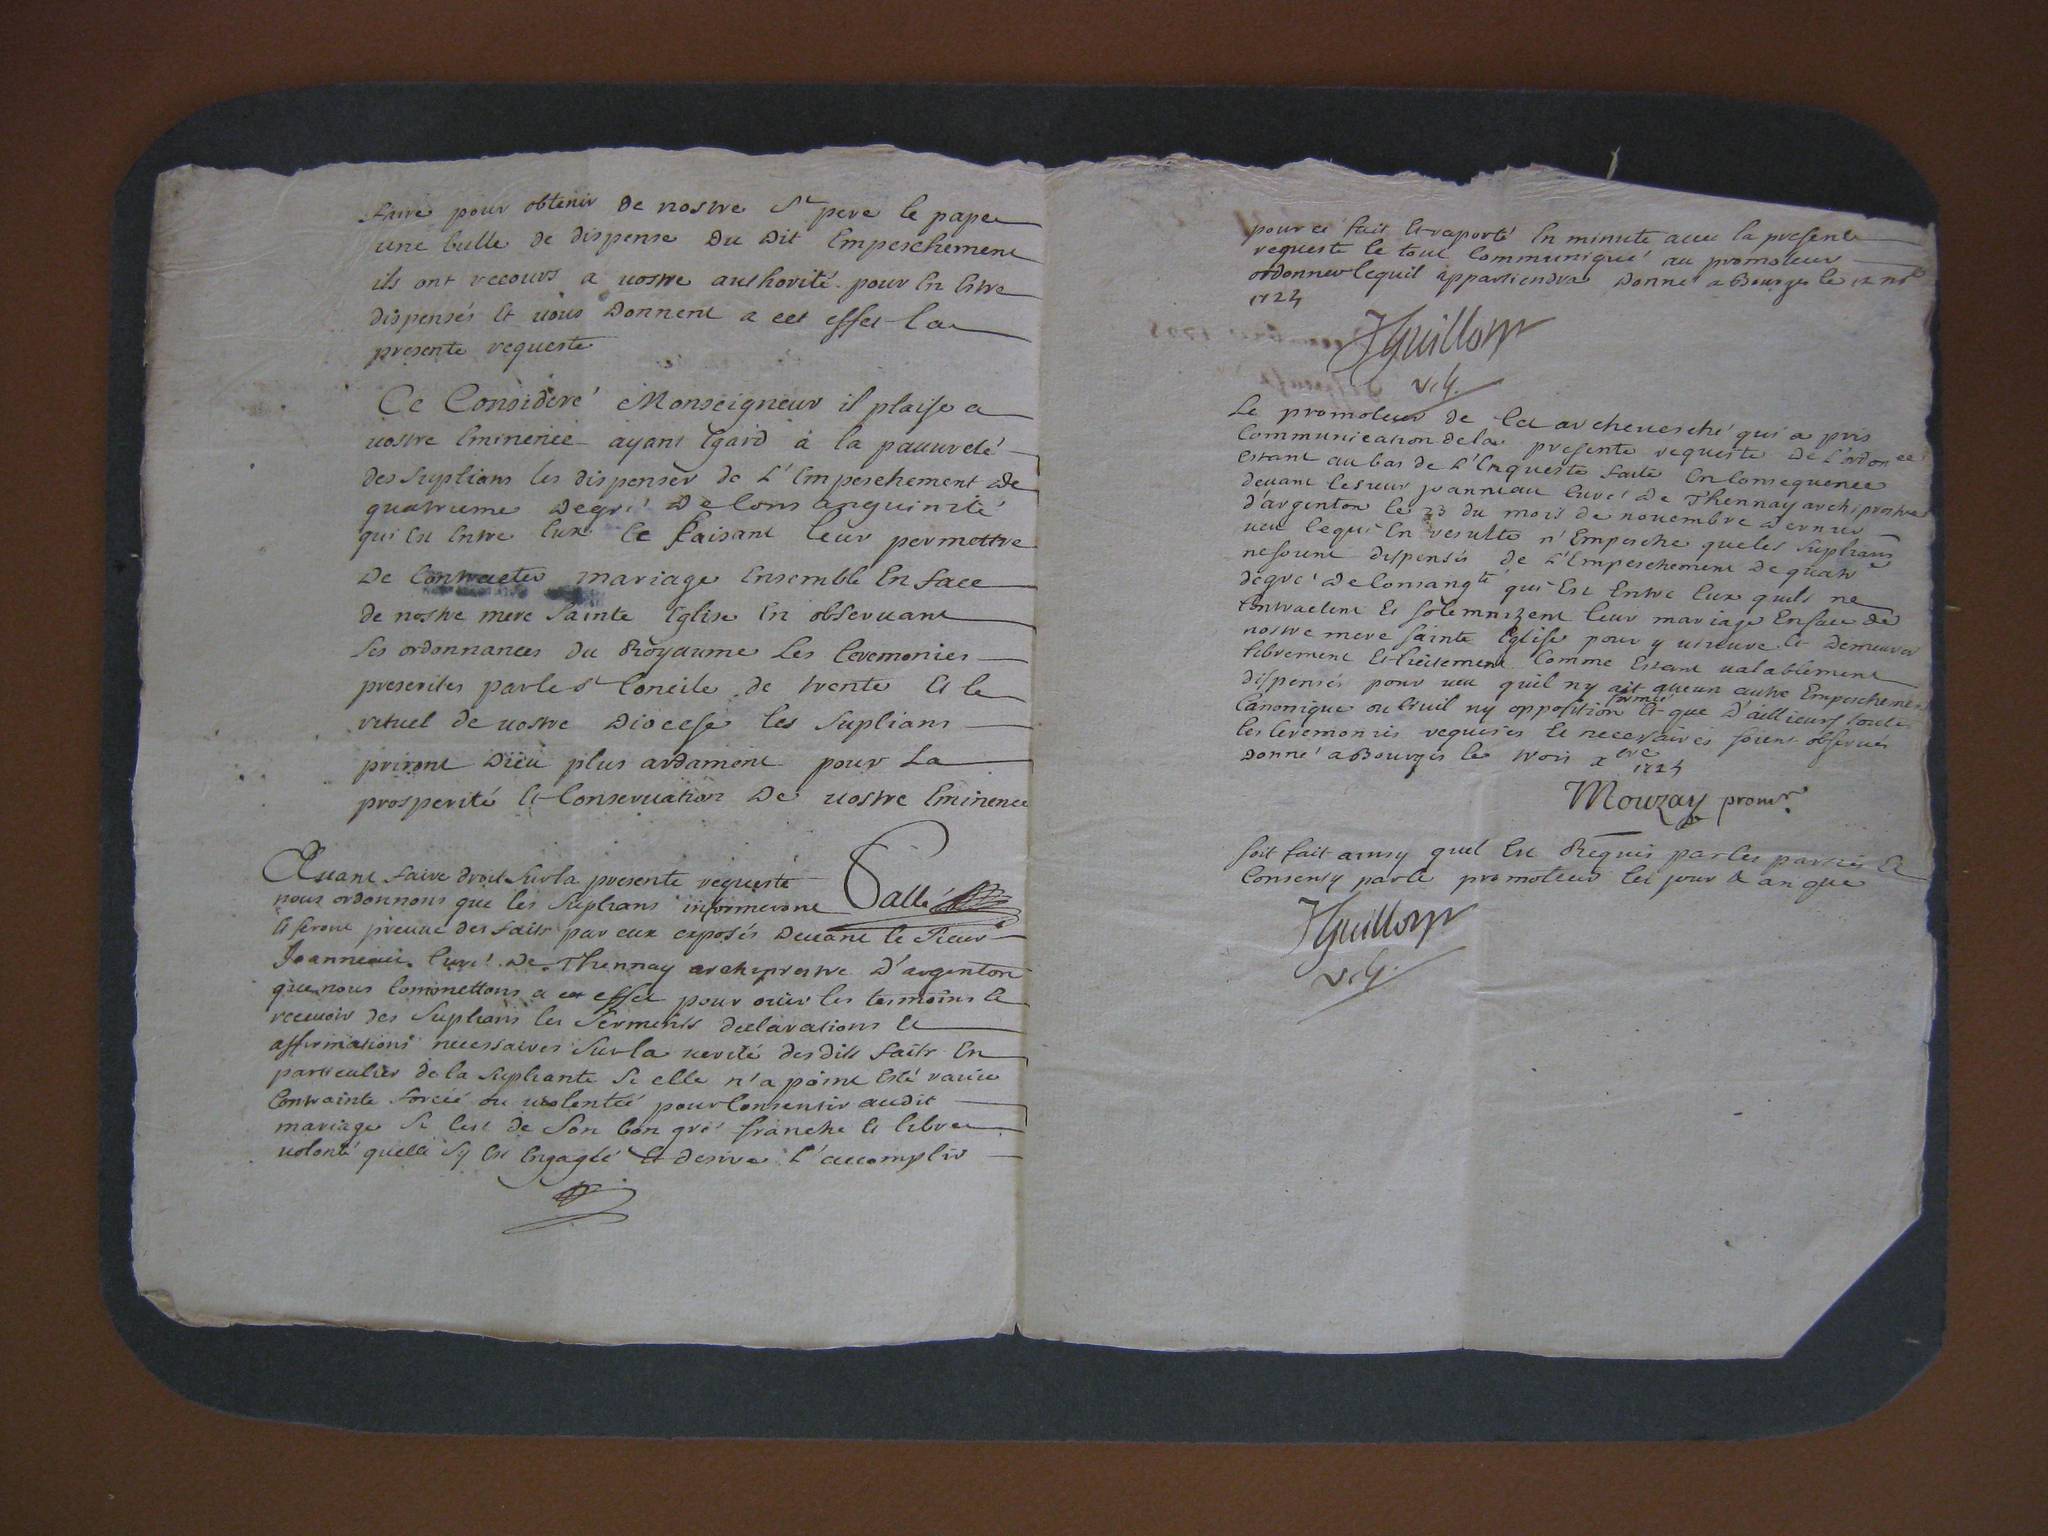 faire pour obtenir de nostre St pere le pape
une bulle de dispense du dit Empeschement
ils ont recours a vostre authorité pour En Estre
dispensés Et vous donnent a cet effet la
presente requeste
Ce Consideré Monseigneur il plaise a
vostre Eminence ayant Egard à la pauvreté
des supliants les dispenser de L'Empeschement de
quatrieme degré de Consanguinité
qui Est Entre Eux Ce faisant leur permettre
de Contracter mariage Ensemble En face
de nostre mere Sainte Eglise En observant
les ordonnances du Royaume Les Ceremonies
prescrites par le St Concile de trente Et le
rituel de vostre Diocese les supliants
priront Dieu plus ardament pour La
prosperité Et Conservation de vostre Eminence
Pallé
Avant faire droit sur la presente requeste
nous ordonnons que les suplians informeront
Et feront preuve des faits par eux exposés devant le sieur
Joanneau Curé de Thennay archiprestre d'argenton
que nous Commettons a cet effet pour ouir les tesmoins Et
recevoir des suplians les serments declarations Et
affirmations necessaires sur la verité desdits faits En
particulier de la supliante si elle n'a point Esté ravie
Contrainte forcée ou violentée pour Consentir audit
mariage si C'est de son bon gré franche Et libre
volonté quelle sy Est Engagée Et desire L'accomplir
pour ce fait Et raporté En minute avec la presente
requeste le tout Communiqué au promoteur
ordonner ce quil appartiendra donné a Bourges le 12 nbre
1724
JGuillory
v.G.
Le promoteur de Cet archevesché qui a pris
Communication de la presente requeste de L'ordonce
Estant au bas de L'Enqueste faite En Consequence
devant le sieur joanneau Curé de Thennay archiprestre
d'argenton le 23 du mois de novembre dernier
veu ce qui En resulte n'Empesche que les supliants
ne soient dispensés de L'Empeschement de quatre
degré de Consangté qui Est Entre Eux quils ne
Contractent Et solemnizent leur mariage En face de
nostre mere sainte Eglise pour y vivre Et demeurer
librement Et licitement Comme Estant valablement
dispensés pourveu quil ny ait aucun autre Empeschement
Canonique ou Civil ny opposition formée Et que d'ailleurs toutes
les Ceremonies requises Et necessaires soient observées
donné a Bourges le trois xbre 1724
Mouzay promr.
soit fait ainsy quil Est Requis par les parties Et
Consenty par le promoteur les jour Et an que
JGuillory
v.G.